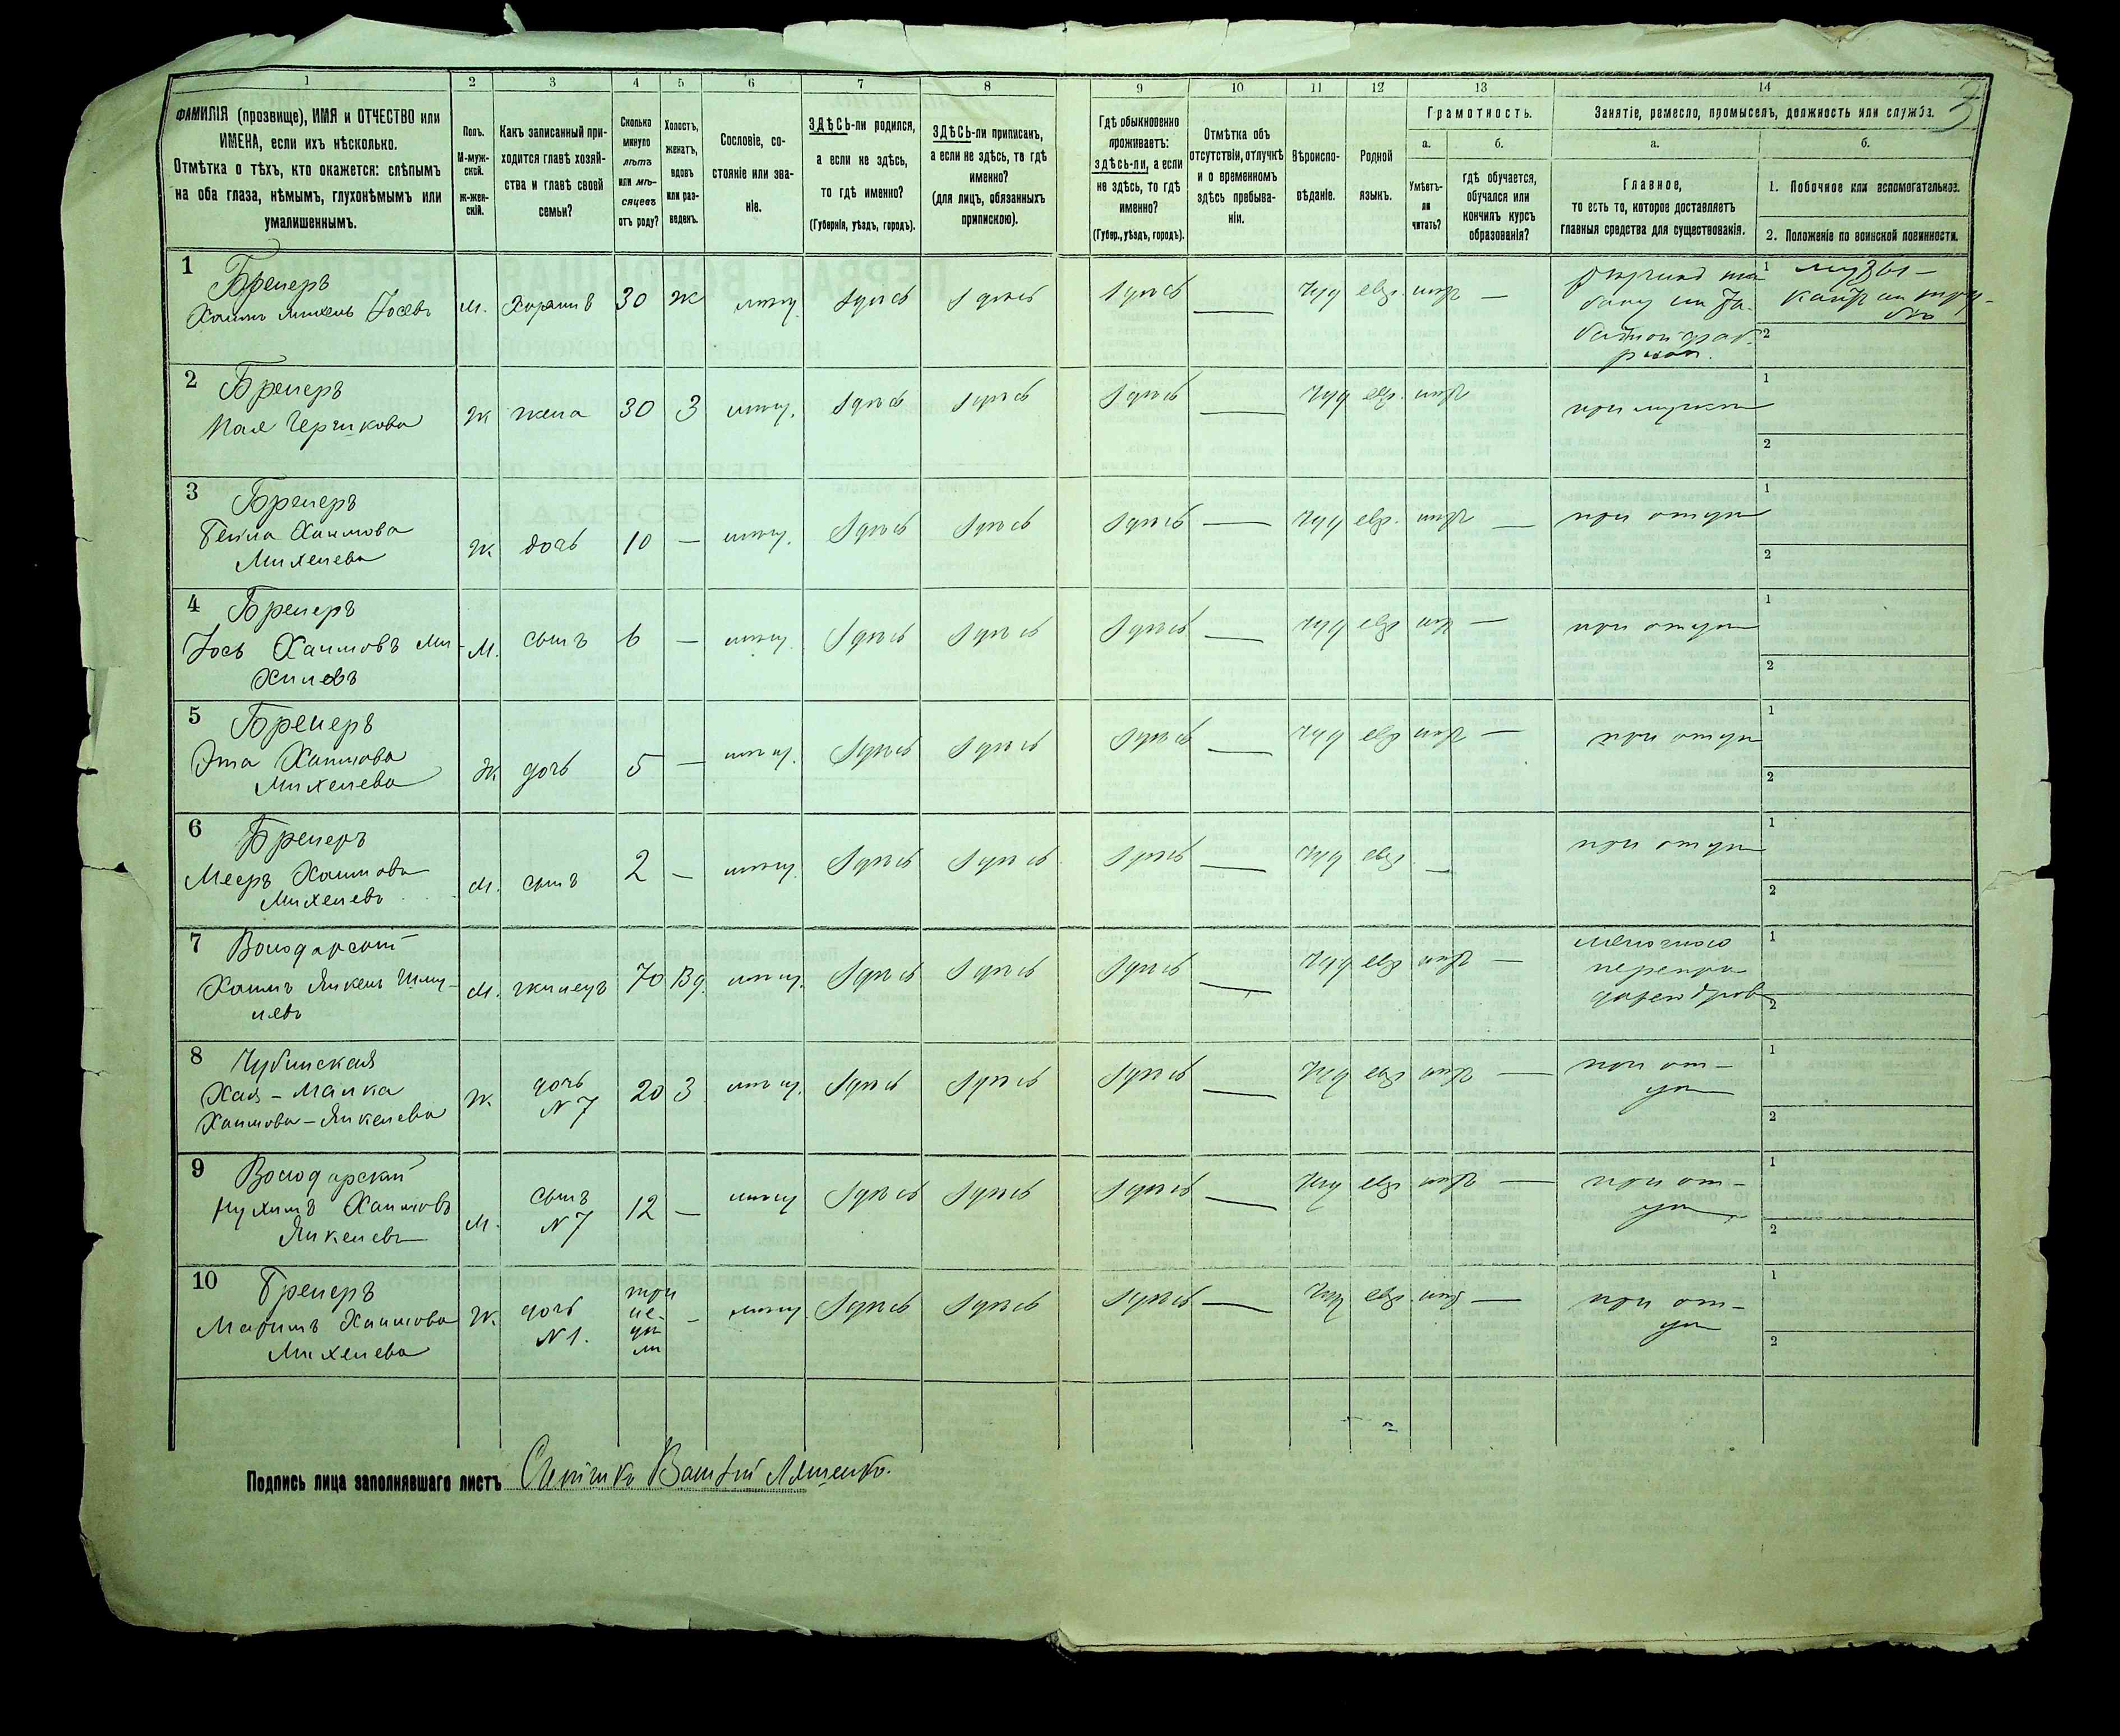 1 2 3 4 5 6 7 8 9 10 11 12 13 14
3
ФАМИЛІЯ (прозвище), ИМЯ и ОТЧЕСТВО или ИМЕНА, если ихъ нѣсколько.
Отмѣтка о тѣхъ, кто окажется: слѣпымъ на оба глаза, нѣмымъ, глухонѣмымъ или умалишеннымъ.
Полъ. М-мужской. Ж-женскій.
Какъ записанный приходится главѣ хозяйства и главѣ своей семьи?
Сколько минуло лѣтъ или мѣсяцевъ отъ роду?
Холостъ, женатъ, вдовъ или разведенъ.
Сословіе, состояніе или званіе.
ЗДѢСЬ-ли родился, а если не здѣсь, то гдѣ именно? (Губернія, уѣздъ, городъ).
ЗДѢСЬ-ли приписанъ, а если не здѣсь, то гдѣ именно? (для лицъ, обязанныхъ припискою).
Гдѣ обыкновенно проживаетъ: здѣсь-ли, а если не здѣсь, то гдѣ именно? (Губер., уѣздъ, городъ).
Отмѣтка объ отсутствіи, отлучкѣ и о временномъ здѣсь пребываніи.
Вѣроисповѣданіе.
Родной языкъ.
Грамотность.
а. Умѣетъ-ли читать?
б. гдѣ обучается, обучался или кончилъ курсъ образованія?
Занятіе, ремесло, промыселъ, должность или служба.
а. Главное, то есть то, которое доставляетъ главныя средства для существованія.
б.
1. Побочное или вспомогательное.
2. Положеніе по воинской повинности.
1 Бренеръ
Хаимъ Михель Іосевъ м. Хозяинъ 30 ж мѣщ. Здѣсь Здѣсь Здѣсь — іуд евр. негр —
1 музы-
2
2 Бренеръ ж жена 30 З мѣщ. Здѣсь Здѣсь Здѣсь — іуд евр. негр при мужѣ
1
2
3 Бренеръ
Хаимова
Михелева ж. дочь 10 — мѣщ. Здѣсь Здѣсь Здѣсь — іуд евр. негр — при отцѣ
1
2
4 Бренеръ
Іось Хаимовъ Ми-
хилевъ м. сынъ 6 — мѣщ. Здѣсь Здѣсь Здѣсь — іуд евр негр — при отцѣ
1
2
5 Бренеръ
Эта Хаимова
Михелева ж. дочь 5 — мѣщ. Здѣсь Здѣсь Здѣсь — іуд евр негр — при отцѣ
1
2
6 Бренеръ
Мееръ Хаимовъ
Михелевъ м. сынъ 2 — мѣщ. Здѣсь Здѣсь Здѣсь — іуд евр. — при отцѣ
1
2
7 Володарскій
Хаимъ Янкель Шму-
левъ м. жилецъ 70 Вд. мѣщ. Здѣсь Здѣсь Здѣсь — іуд евр негр —
мелочная
перепро-
дажа дровъ
1
2
8 Чубинская
Хая - Малка
Хаимова - Янкелева ж. дочь
№ 7 20 З мѣщ. Здѣсь Здѣсь Здѣсь — іуд евр негр — при от-
цѣ
1
2
9 Володарскій
Нухимъ Хаимовъ
Янкелевъ м. сынъ
№ 7 12 — мѣщ Здѣсь Здѣсь Здѣсь — іуд евр негр — при от-
цѣ
1
2
10 Бренеръ
Хаимова
Михелева ж. дочь
№ 1. три
не-
дѣ
ли — мѣщ. Здѣсь Здѣсь Здѣсь — іуд евр. негр — при от-
цѣ
1
2
Подпись лица заполнявшаго листъ